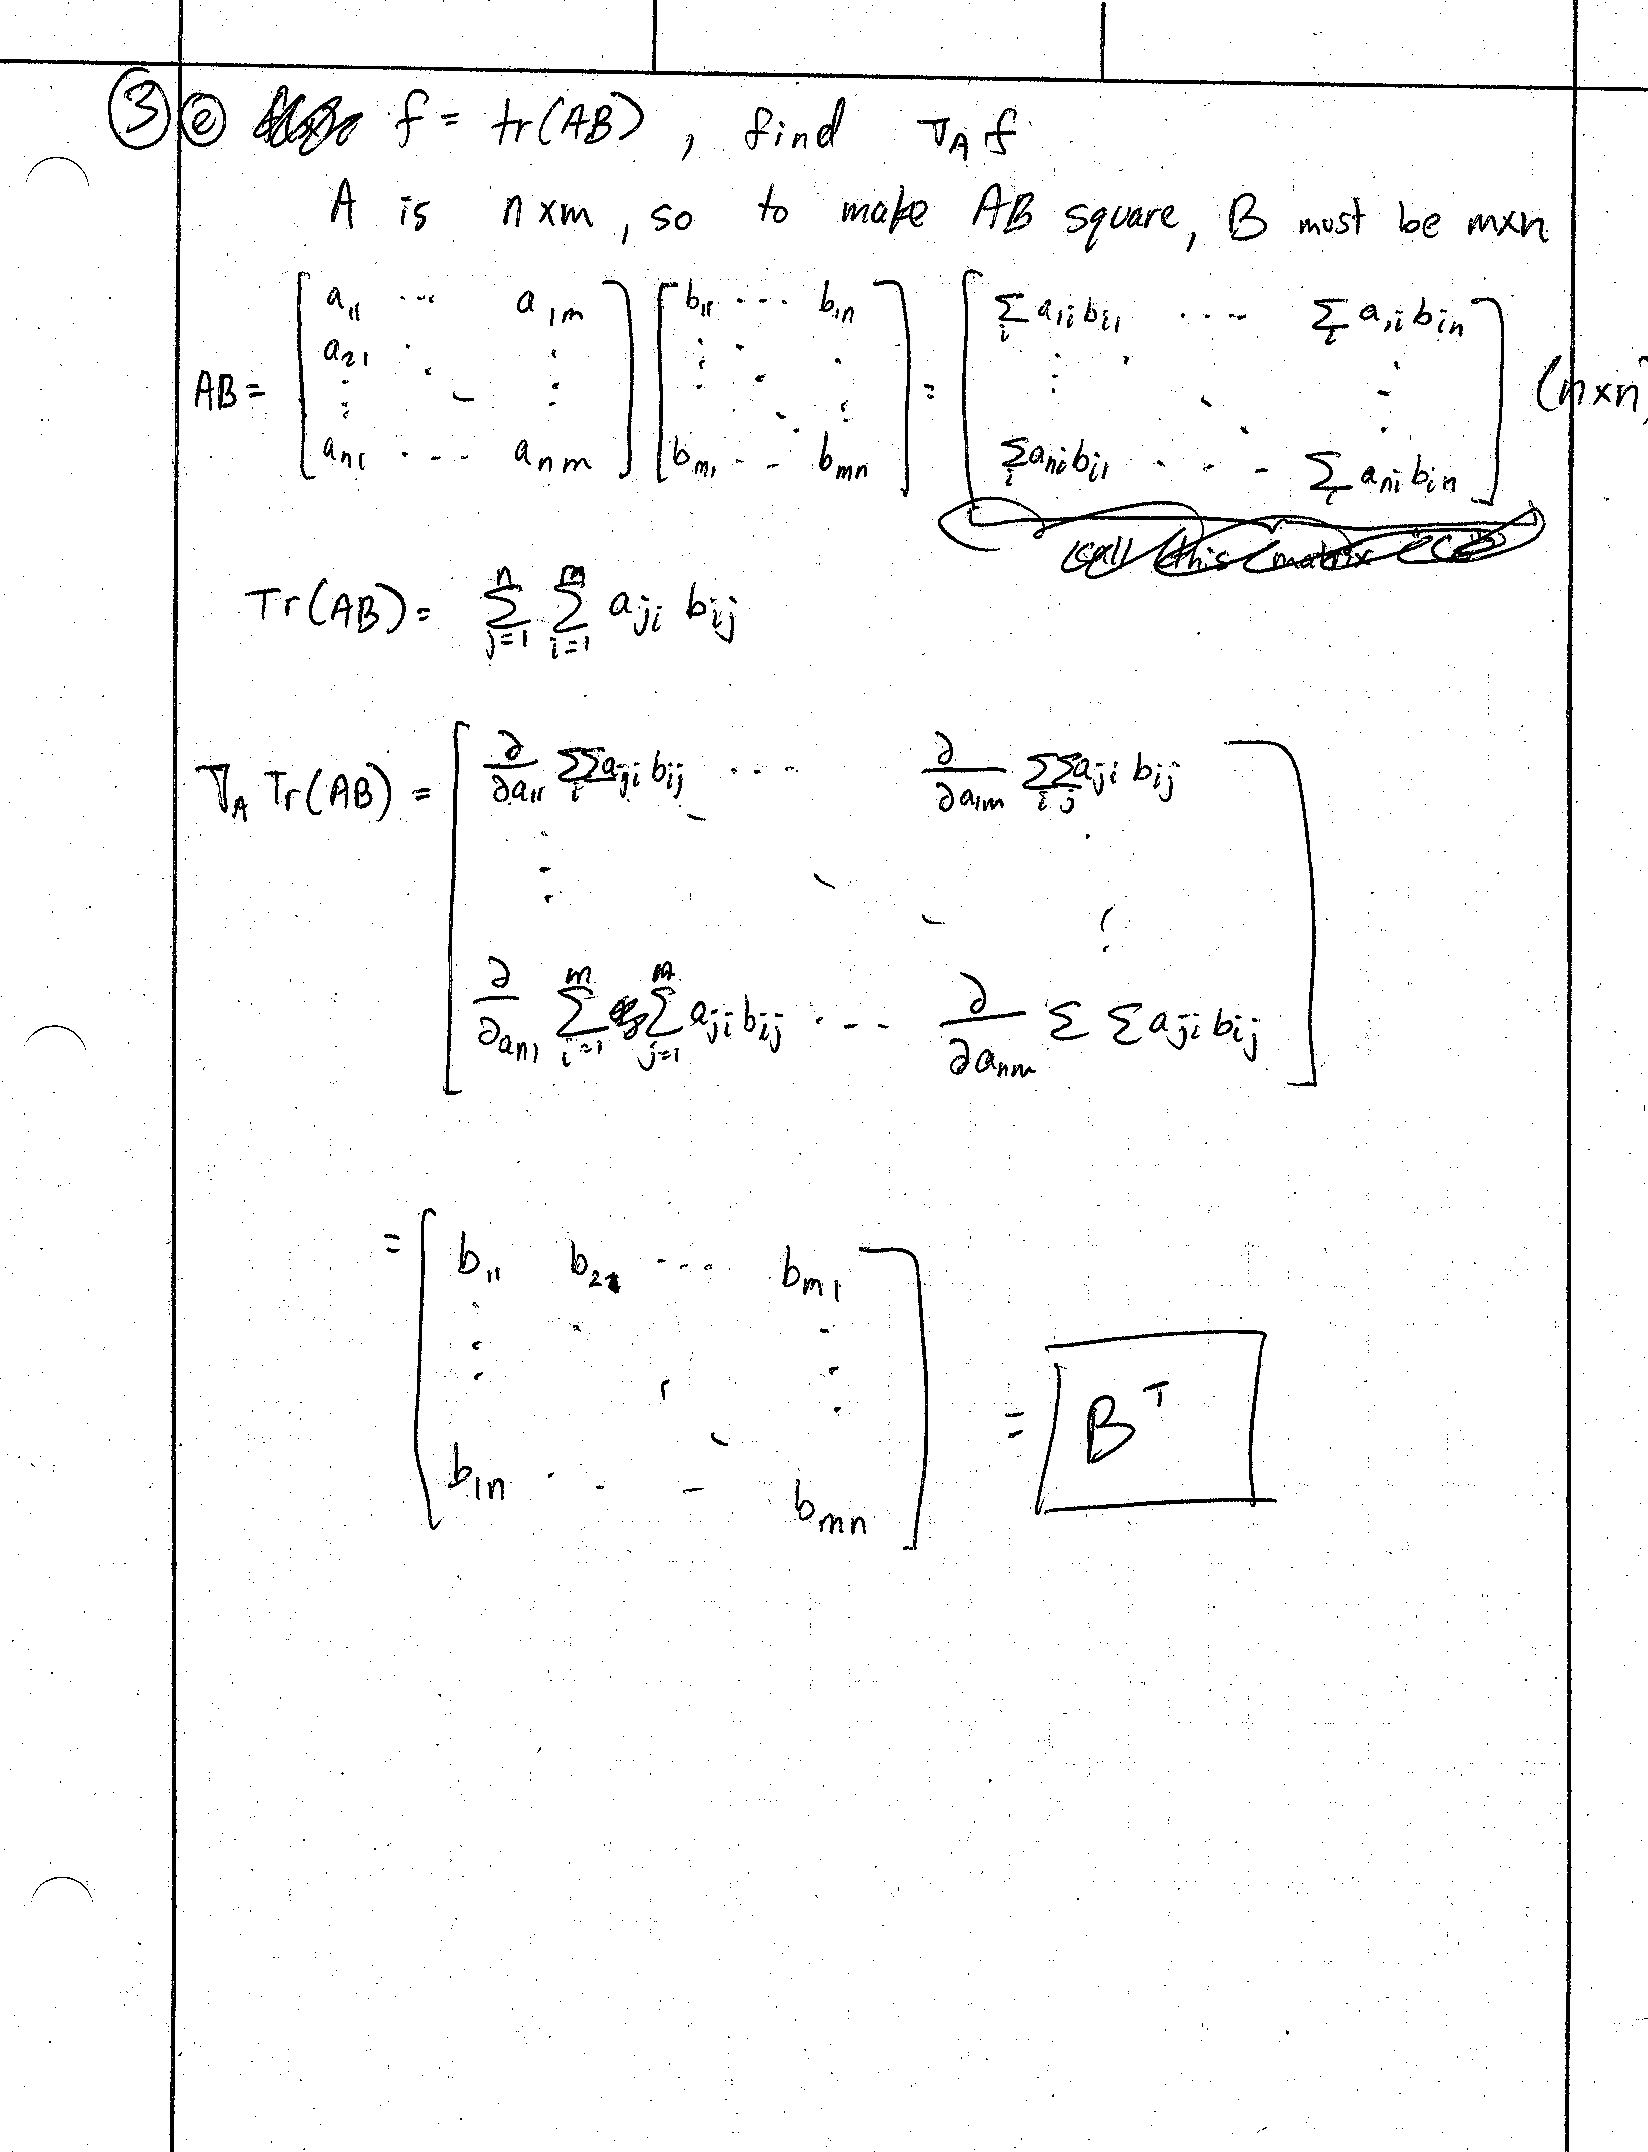 ③ ⓔ f = tr(AB), find ∇_A f
A is n×m, so to make AB square, B must be m×n
AB = [ a_11 ⋯ a_1m ; a_21 ⋱ ⋮ ; a_n1 ⋯ a_nm ] [ b_11 ⋯ b_1n ; ⋮ ⋱ ⋮ ; b_m1 ⋯ b_mn ] = [ Σ_i a_1i b_i1 ⋯ Σ_i a_1i b_in ; ⋮ ⋱ ⋮ ; Σ_i a_ni b_i1 ⋯ Σ_i a_ni b_in ] (n×n)
call this matrix
Tr(AB) = Σ_{j=1}^{n} Σ_{i=1}^{m} a_ji b_ij
∇_A Tr(AB) = [ ∂/∂a_11 ΣΣ_i a_ji b_ij ⋯ ∂/∂a_1m Σ_i Σ_j a_ji b_ij ; ⋮ ⋱ ⋮ ; ∂/∂a_n1 Σ_{i=1}^{m} Σ_{j=1}^{m} a_ji b_ij ⋯ ∂/∂a_nm Σ Σ a_ji b_ij ]
= [ b_11 b_21 ⋯ b_m1 ; ⋮ ⋱ ⋮ ; b_1n ⋯ b_mn ] = B^T